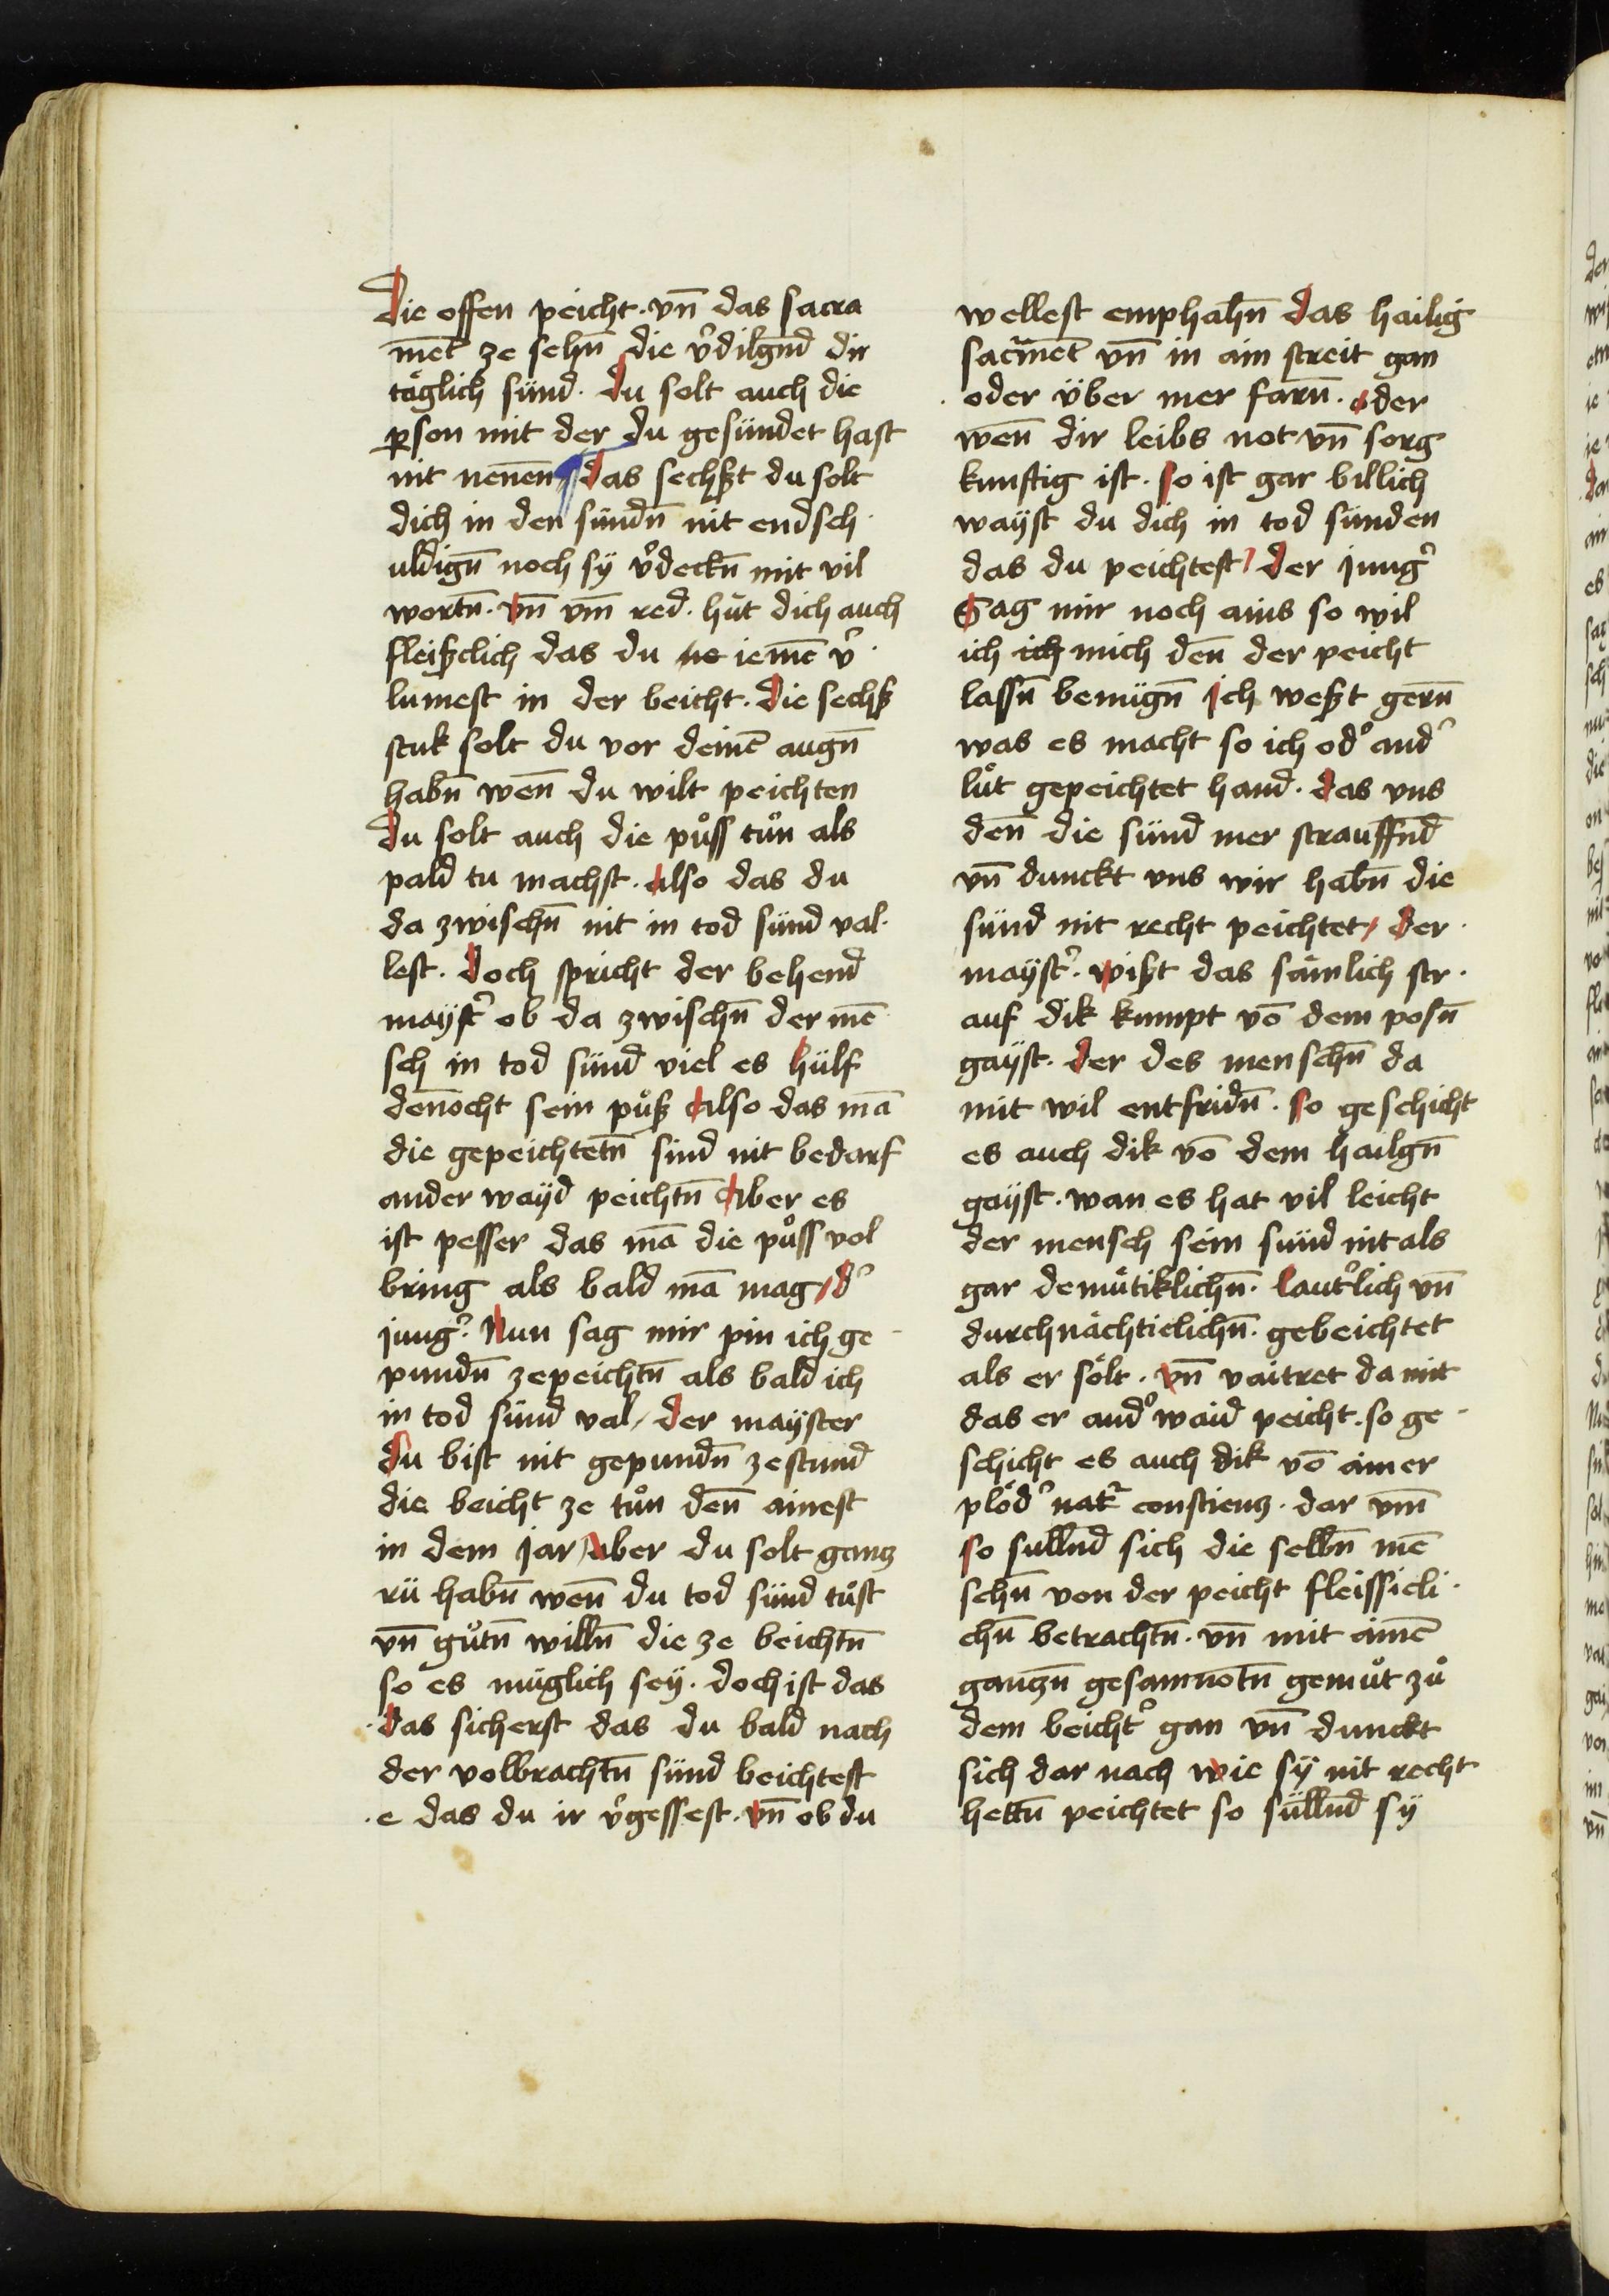 Die offen peicht · vn̄ das sacra
mēt ze sehn̄ die v̉dilgnd̄ dir
täglich sünd · du solt auch die
ꝑson mit der du gesündet hast
nit nenēn das sechßt du solt
dich in den sündn̄ nit endsch ·
uldign̄ noch sy v̉deckn̄ mit vil
wortn̄ · vn̄ vm̄ red · hüt dich auch
fleißclich das du ne iemē v̉ ·
lumest in der beicht · die sechß
stuk solt du vor deinē augn̄
habn̄ wen̄ du wilt peichten
du solt auch die půss tůn als
pald tu machst · also das du
da zwischn̄ nit in tod sünd val ·
lest · doch spricht der behend
mayst̉ ob da zwischn̄ der mē
sch in tod sünd viel es hülf
den̄ocht sein půß also das mā
die gepeichtetn̄ sünd nit bedarf
ander wayd peichtn̄ Aber es
ist pesser das mā die půss vol
bring als bald mā mag / d̉
jung̉ · Nun sag mir pin ich ge -
pundn̄ zepeichtn̄ als bald ich
in tod sünd val / der mayster
du bist nit gepundn̄ zestund
die beicht ze tůn den̄ ainest
in dem jar / Aber du solt gancz
rü habn̄ wen̄ du tod sünd tůst
vn̄ gůtn̄ willn̄ die ze beichtn̄
so es müglich sey · doch ist das
· das sicherst das du bald nach
der volbrachtn̄ sünd beichtest
· e das du ir v̉gessest · vn̄ ob du
wellest emphahn̄ das hailig
sacr̄mēt vn̄ in ain streit gan
· oder über mer farn̄ · oder
wen̄ dir leibs not vn̄ sorg
kunftig ist · so ist gar billich
wayst du dich in tod sünden
das du peichtest / der jung̉
Sag mir noch ains so wil
ich ich mich den̄ der peicht
lassn̄ benügn̄ jch weßt gern̄
was es macht so ich od̉ and̉
lüt gepeichtet hand · das vns
den̄ die sünd mer strauffnd̄
vn̄ dunckt vns wir habn̄ die
sünd nit recht peichtet / der ·
mayst̉ · wißt das sämlich str ·
auf dik kumpt vō dem posn̄
gayst · der des menschn̄ da
mit wil entfridn̄ · so geschicht
es auch dik vō dem hailgn̄
gayst · wan es hat vil leicht
der mensch sein sünd nit als
gar demütiklichn̄ · laut̉lich vn̄
durchnächticlichn̄ · gebeichtet
als er sölt · vn̄ vaitret da mit
das er and̉ waid peicht · so ge -
schicht es auch dik vō ainer
plöd̉ nat̉ conscienz · dar vm̄
so sullnd̄ sich die selbn̄ mē
schn̄ von der peicht fleissicli ·
chn̄ betrachtn̄ · vn̄ mit ainē
ganczn̄ gesamnotn̄ gemůt zů
dem beicht̉ gan vn̄ dunckt
sich dar nach wie sy nit recht
hettn̄ peichtet so süllnd̄ sy